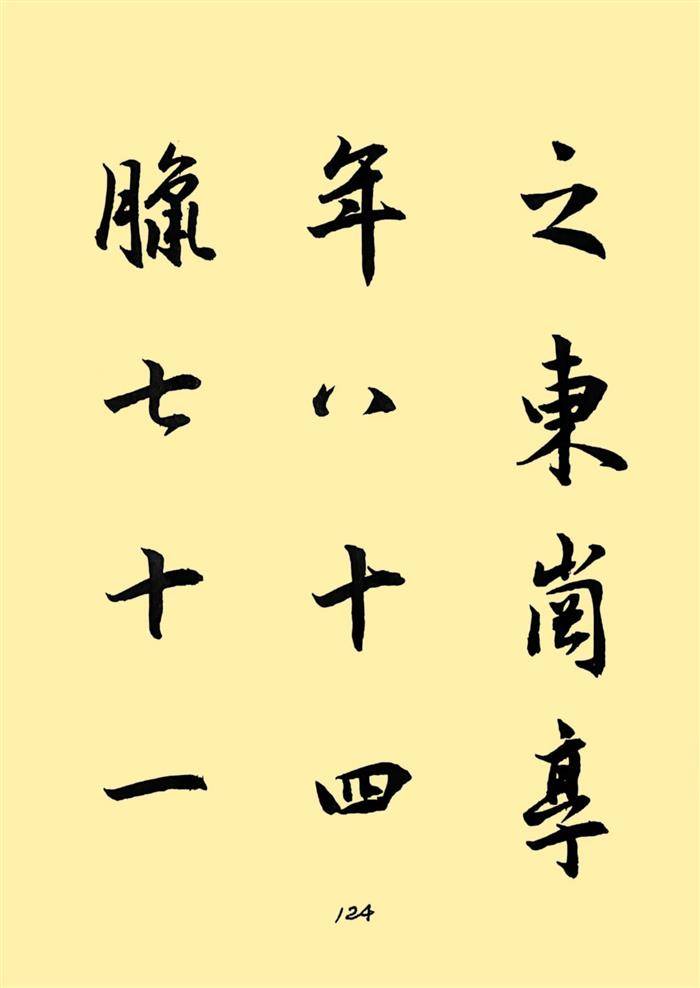 之東崗亭
年八十四
臘七十一
124